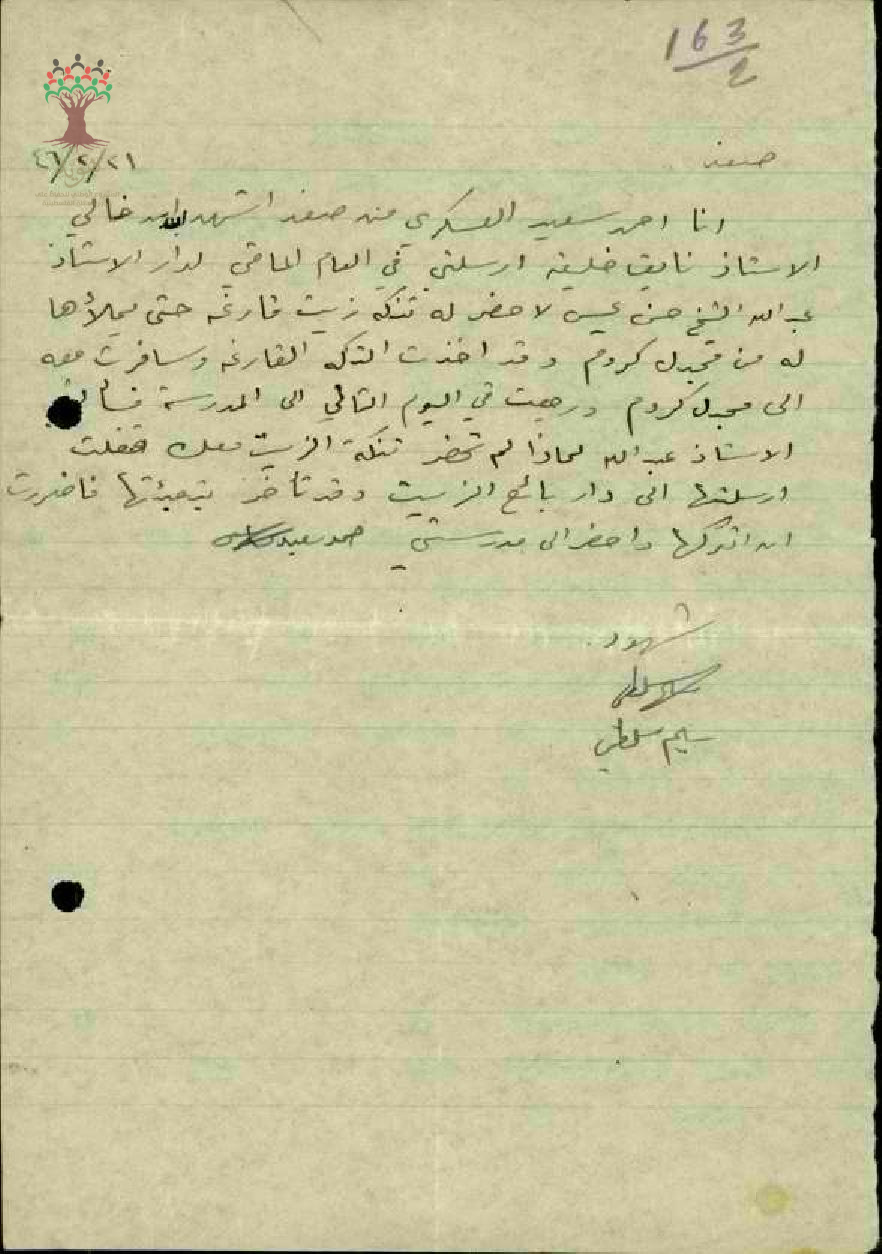 163
2
صفد
٤٦/٢/٢١
انا احمد سعيد العسكري من صفد اشهد بالله ان خالي
الاستاذ نايف خليفه ارسلني في العام الماضي لدار الاستاذ
عبد الله الشيخ حسن عيسى لاحضر له تنكه زيت فارغه حتى يملأها
له من مجدل كروم وقد اخذت التنكه الفارغه وسافرت معه
الى مجدل كروم ورجعت في اليوم التالي الى المدرسة فسألني
الاستاذ عبد الله لماذا لم تحضر تنكة الزيت معك فقلت
ارسلتها الى دار بائع الزيت وقد تأخر بتعبئتها فاضررت
ان اتركها واحضر الى مدرستي احمد سعيد
شهود
سليم سلطي